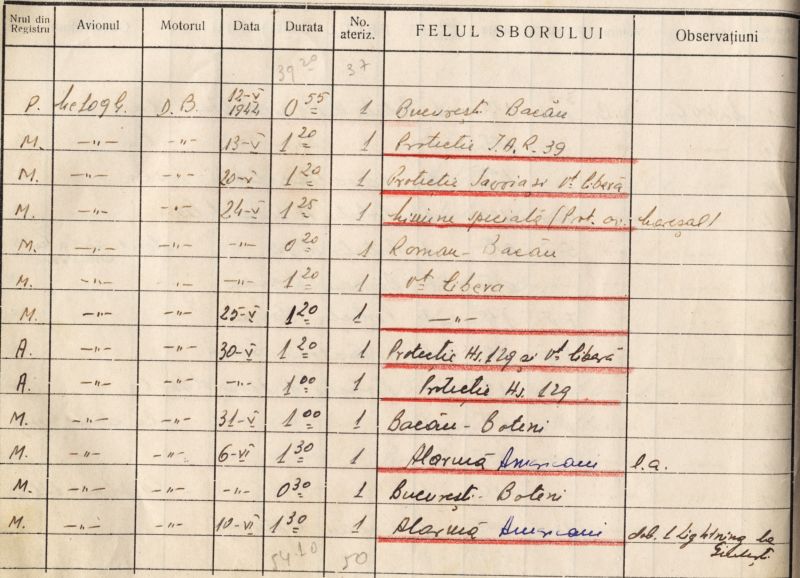 Nrul din Registru Avionul Motorul Data Durata No. ateriz. FELUL SBORULUI Observațiuni
39 20 37
P. Me 109 G. D.B. 12-V 1944 0 55 1 București Bacău
M. —"— —"— 13-V 1 20 1 Protecție I.A.R. 39
M. —"— —"— 20-V 1 20 1 Protecție Savoia și Vt. liberă
M. —"— —"— 24-V 1 25 1 Misiune specială (Prot. av. Mareșal)
M. —"— —"— —"— 0 20 1 Roman - Bacău
M. —"— —"— —"— 1 20 1 Vt liberă
M. —"— —"— 25-V 1 20 1 —"—
A. —"— —"— 30-V 1 20 1 Protecție Hs. 129 și Vt liberă
A. —"— —"— —"— 1 00 1 Protecție Hs. 129
M. —"— —"— 31-V 1 00 1 Bacău - Boteni
M. —"— —"— 6-VI 1 30 1 Alarmă Americani l.a.
M. —"— —"— —"— 0 30 1 București - Boteni
M. —"— —"— 10-VI 1 30 1 Alarmă Americani dob. 1 Lightning la
54 10 50